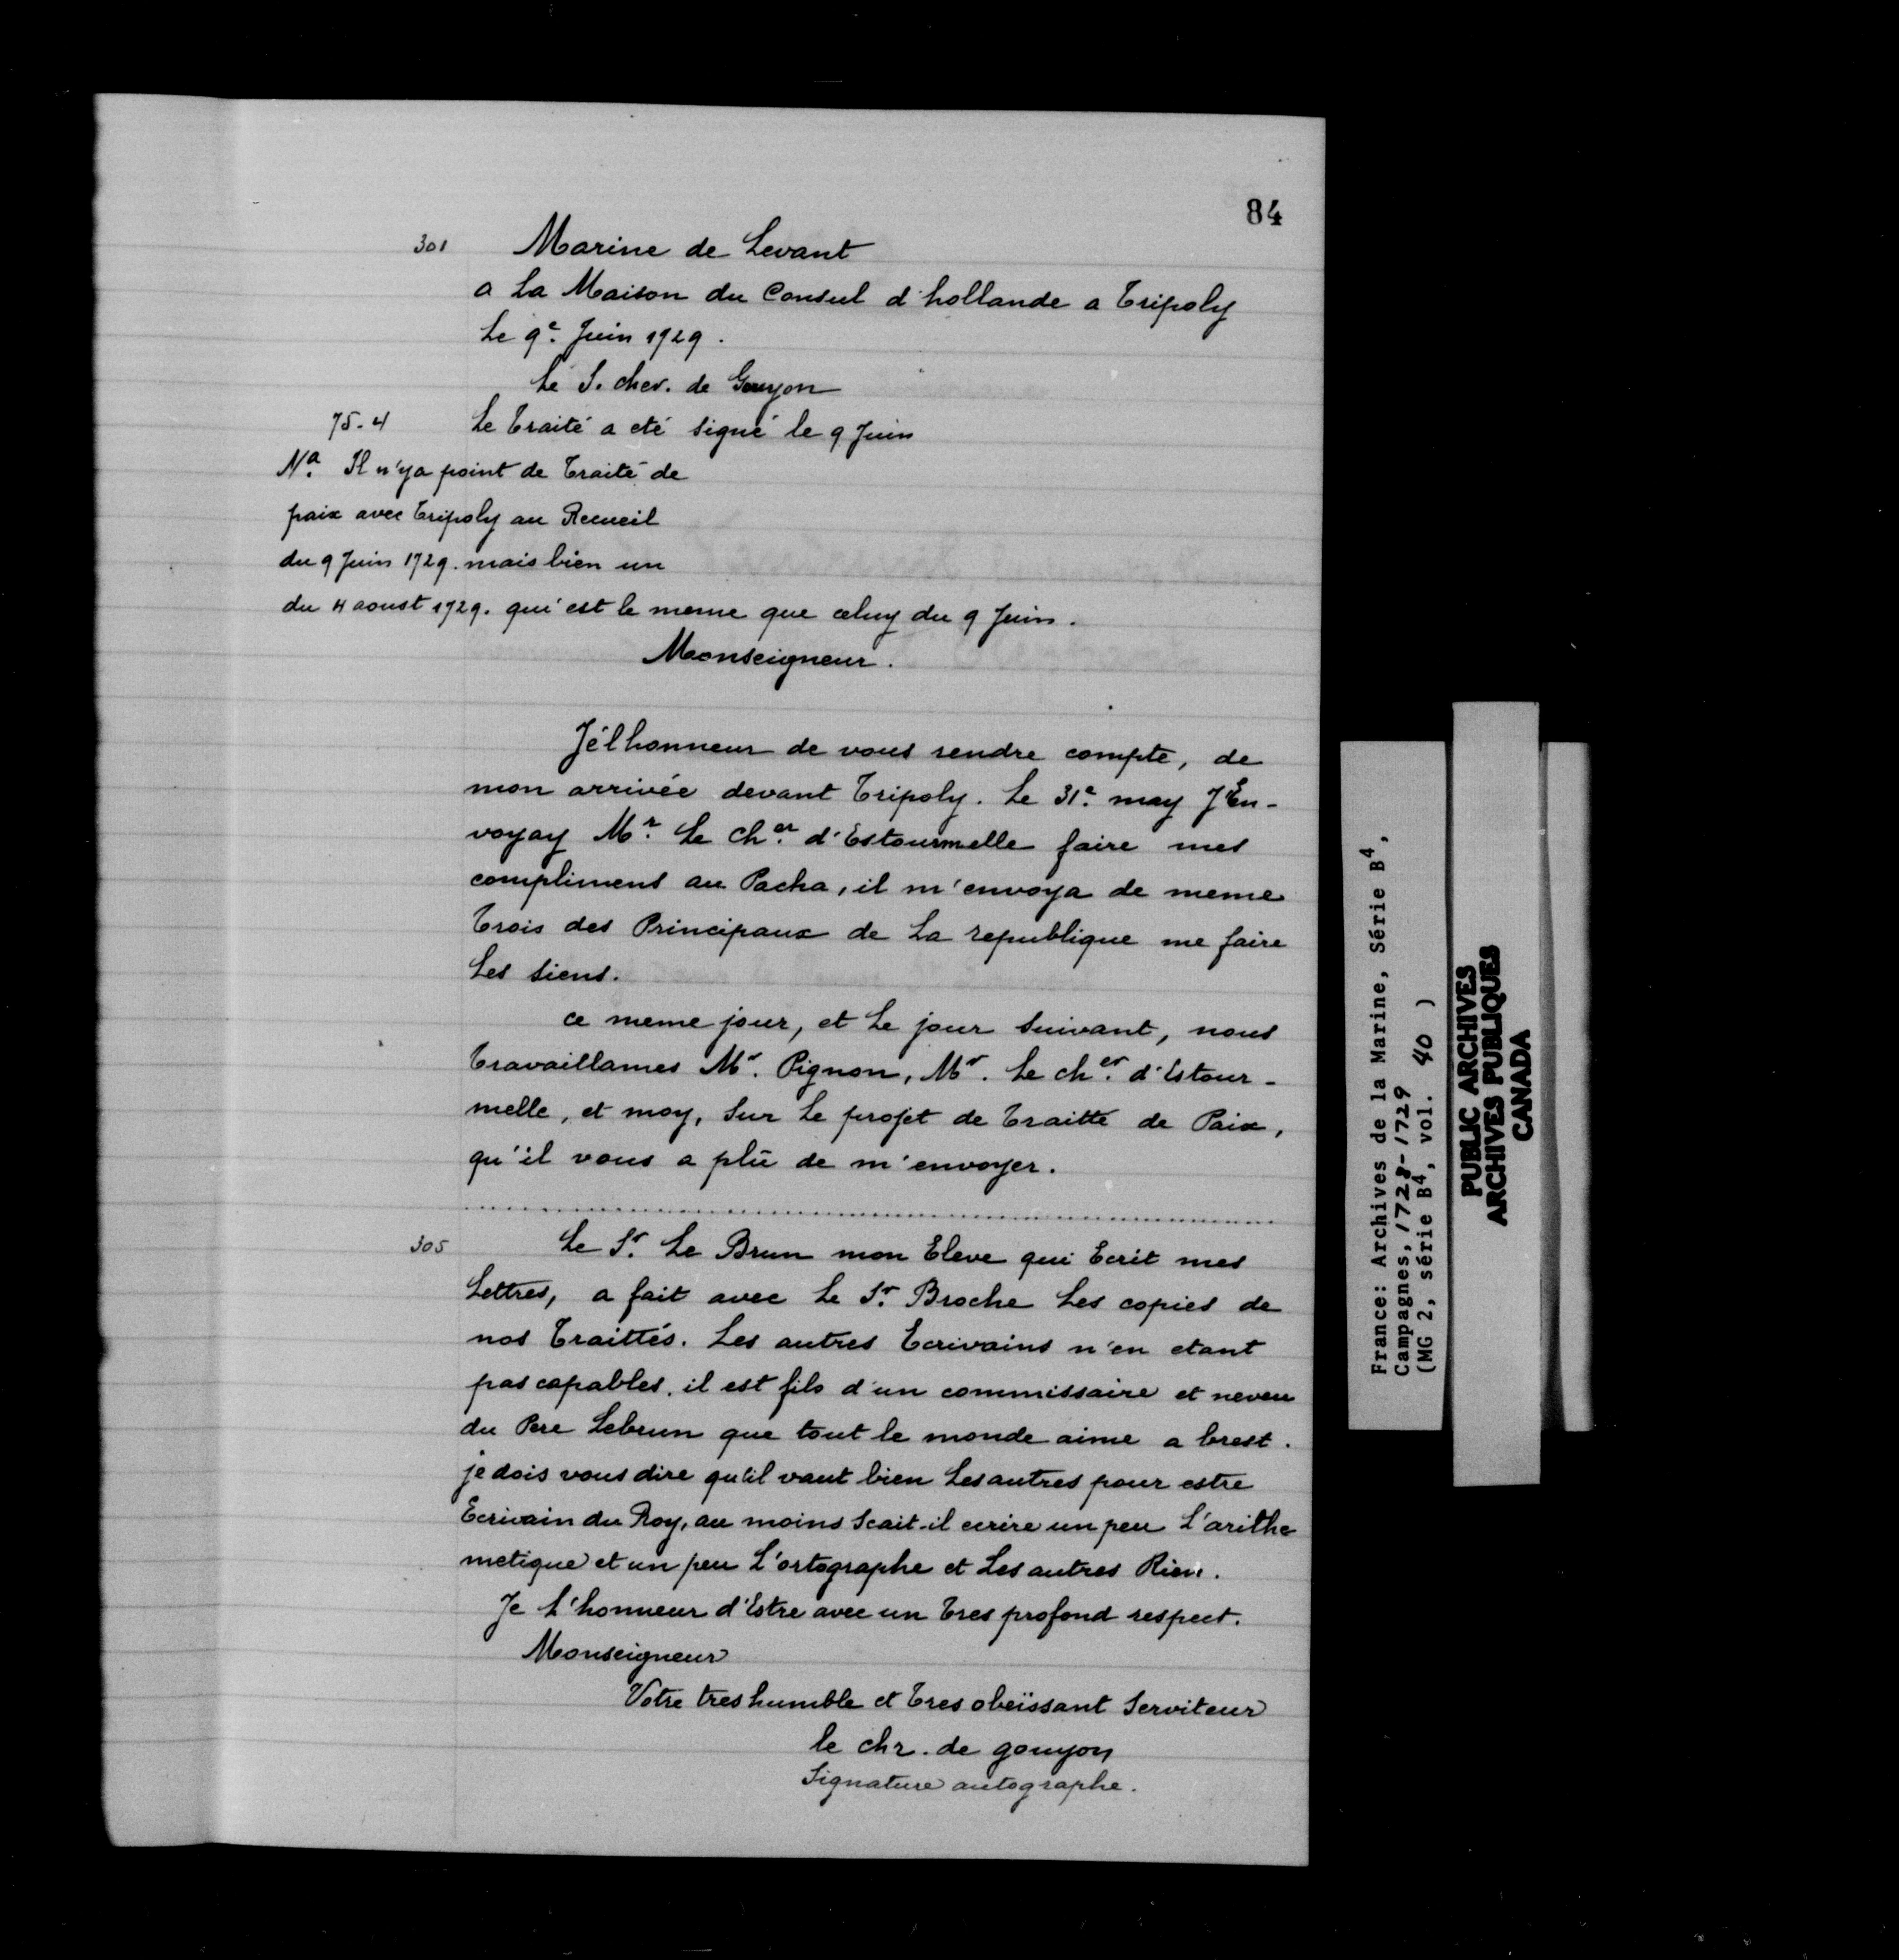 84
301 Marine de Levant
a La Maison du Consul d'hollande a Tripoly
Le 9e. Juin 1729.
Le S. chev. de Gouyon
75-4 Le Traité a eté signé le 9 Juin
Na. Il n'ya point de Traité de
paix avec Tripoly au Recueil
du 9 Juin 1729. mais bien un
du 4 aoust 1729. qui est le meme que celuy du 9 Juin.
Monseigneur.
J'élhonneur de vous rendre compte, de
mon arrivée devant Tripoly. Le 31e. may J'En-
voyay Mr. Le Cher. d'Estourmelle faire mes
complimens au Pacha, il m'envoya de meme
Trois des Principaux de La republique me faire
Les siens.
ce meme jour, et Le jour suivant, nous
Travaillames Mr. Pignon, Mr. Le cher. d'Estour-
melle, et moy, Sur Le projet de Traitté de Paix,
qu'il vous a plû de m'envoyer.
305 Le Sr. Le Brun mon Eleve qui Ecrit mes
Lettres, a fait avec Le Sr. Broche Les copies de
nos Traittés. Les autres Ecrivains n'en etant
pas capables. il est fils d'un commissaire et neveu
du Pere Lebrun que tout le monde aime a brest.
je dois vous dire qu'il vaut bien Les autres pour estre
Ecrivain du Roy, au moins Scait-il ecrire un peu L'arithe
metique et un peu L'ortographe et Les autres Rien.
Je L'honneur d'Estre avec un Tres profond respect.
Monseigneur
Votre tres humble et Tres obeïssant Serviteur
le chr. de gouyon
Signature autographe.
France: Archives de la Marine, Série B4,
Campagnes, 1728-1729
(MG 2, série B4, vol. 40 )
PUBLIC ARCHIVES
ARCHIVES PUBLIQUES
CANADA